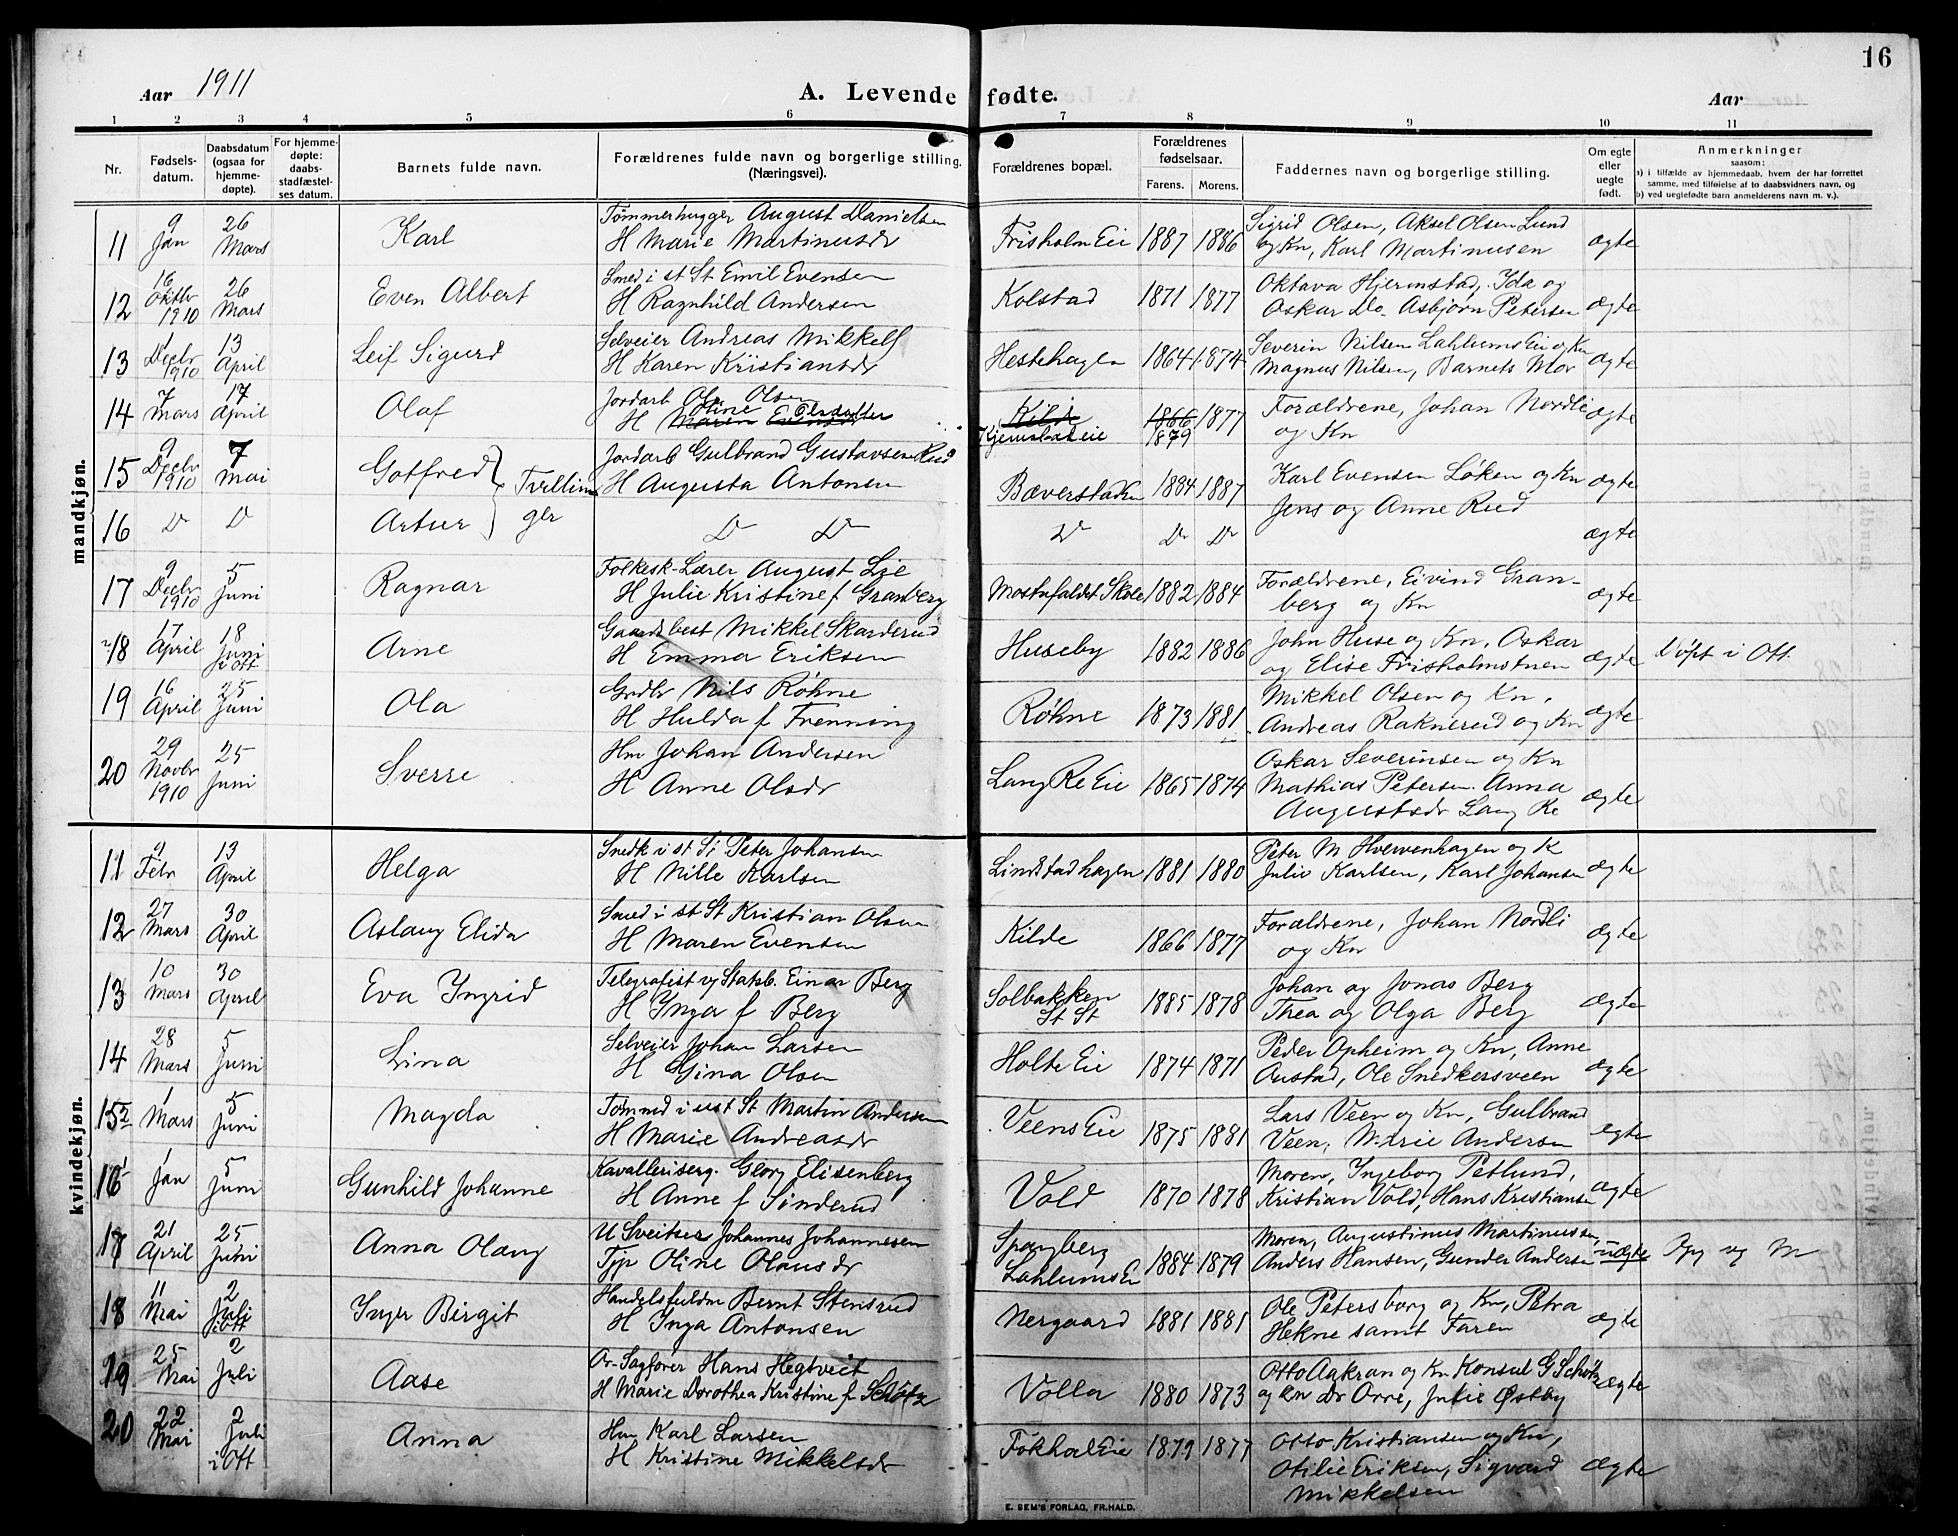 16
Aar 1911
A. Levende fødte.
Aar
1 2 3 4 5 6 7 8 9 10 11
Nr.
Fødsels-
datum.
Daabsdatum
(ogsaa for
hjemme-
døpte).
For hjemme-
døpte:
daabs-
stadfæstel-
ses datum.
Barnets fulde navn.
Forældrenes fulde navn og borgerlige stilling.
(Næringsvei).
Forældrenes bopæl.
Forældrenes
fødselsaar.
Farens. Morens.
Faddernes navn og borgerlige stilling.
Om egte
eller
uegte
født.
Anmerkninger
saasom:
a) i tilfælde av hjemmedaab, hvem der har forrettet
samme, med tilføielse af to daabsvidners navn, og
b) ved uegtefødte barn anmelderens navn m. v.).
mandkjøn.
11 9 Jan 26 Mars Karl
Tømmerhugger August Danielsen
H Marie Martinusdr
Frisholm Eie 1887 1886
Sigrid Olsen, Aksel Olsen Lund
og Kn, Karl Martinusen
ægte
12 16 Oktbr 1910 26 Mars Even Albert
Smed i st St Emil Evensen
H Ragnhild Andersen
Kolstad 1871 1877
Oktava Hjermstad, Ida og
Oskar Do. Asbjørn Petersen
ægte
13 1 Decbr 1910 13 April Leif Sigurd
Selveier Andreas Mikkels
H Karen Kristiansdr
Hestehagen 1864 1874
Severin Nilsen Lahlums Eie og Kn
Magnus Nilsen, Barnets Mor
ægte
14 7 Mars 17 April Olaf
Jordarb Ole Olsen
H Oline Olsdatter
Maren Evensdr
Kilde
1866 1877
1879
Forældrene, Johan Nordli
og Kn
ægte
15 9 Decbr 1910 7 Mai Gotfred
Tvillin
ger
Jordarb Gulbrand Gustavsen Rud
H Augusta Antonsen
Bæverstadkn 1884 1887
Karl Evensen Løken og Kn
Jens og Anne Rud
ægte
16 Do Do Artur
Do Do
Do Do Do
ægte
17 9 Decbr 1910 5 Juni Ragnar
Folkesk-Lærer August Lie
H Julie Kristine f Granberg
Mostufaldet Skole 1882 1884
Forældrene, Eivind Gran-
berg og Kn
ægte
18 17 April 18 Juni i Ott Arne
Gaardbest Mikkel Skarderud
H Emma Eriksen
Huseby 1882 1886
John Huse og Kn, Oskar
og Elise Frisholmstuen
ægte
Døpt i Ott.
19 16 April 25 Juni Ola
Grdbr Nils Røhne
H Hulda f Frenning
Røhne 1873 1881
Mikkel Olsen og Kn,
Andreas Raknerud og Kn
ægte
20 29 Novbr 1910 25 Juni Sverre
Hm Johan Andersen
H Anne Olsdr
Lang Re Eie 1865 1874
Oskar Severinsen og Kn
Mathias Petersen. Anna
Augustsdr Lang Re
ægte
kvindekjøn.
11 9 Febr 13 April Helga
Snedk i st St Peter Johansen
H Nille Karlsen
Lindstadhagen 1881 1880
Peter M Hvervenhagen og K
Julie Karlsen, Karl Johansen
ægte
12 27 Mars 30 April Aslaug Elida
Smed i st St Kristian Olsen
H Maren Evensen
Kilde 1866 1877
Forældrene, Johan Nordli
og Kn
ægte
13 10 Mars 30 April Eva Ingrid
Telegrafist og Statsb. Einar Berg
H Inga f Berg
Solbakken
St St
1885 1878
Johan og Jonas Berg
Thea og Olga Berg
ægte
14 28 Mars 5 Juni Lina
Selveier Johan Larsen
H Gina Olsen
Holte Eie 1874 1871
Peder Opheim og Kn, Anne
Austad, Ole Snedkersveen
ægte
15 1 Mars 5 Juni Magda
Tømmed i ust St Martin Andersen
H Marie Andreasdr
Veens Eie 1875 1881
Lars Veen og Kn, Gulbrand
Veen, Marie Andersen
ægte
16 1 Jan 5 Juni Gunhild Johanne
Kavallerisergt. Georg Elisenberg
H Anne f Sinderud
Vold 1870 1878
Moren, Ingeborg Petlund,
Kristian Vold, Hans Kristiansen
ægte
17 21 April 25 Juni Anna Olaug
U Sveitser Johannes Johannesen
Tjp Oline Olausdr
Spangberg
Lahlums Eie
1884 1879
Moren, Augustinus Martinussen,
Anders Hansen, Gunder Andersen
uægte
Opg og M
18 11 Mai 2 Juli i Ott Inger Birgit
Handelsfuldm Bernt Stensrud
H Inga Antonsen
Nergaard 1881 1881
Ole Petersborg og Kn, Petra
Hekne samt Faren
ægte
19 25 Mai 2 Juli Aase
Or-Sagfører Hans Hegtveit
H Marie Dorothea Kristine f Schøtz
Volla 1880 1873
Otto Aakran og Kn Konsul G Schøtz
og Kn Dr Orre, Julie Østby
ægte
20 22 Mai 2 Juli i Ott Anna
Hm Karl Larsen
H Kristine Mikkelsdr
Fokhol Eie 1879 1877
Otto Kristiansen og Kn,
Otilie Eriksen, Sigvard
Mikkelsen
ægte
E. SEM'S FORLAG, FR.HALD.